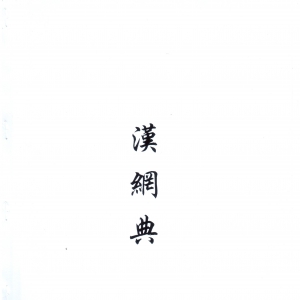 漢網典